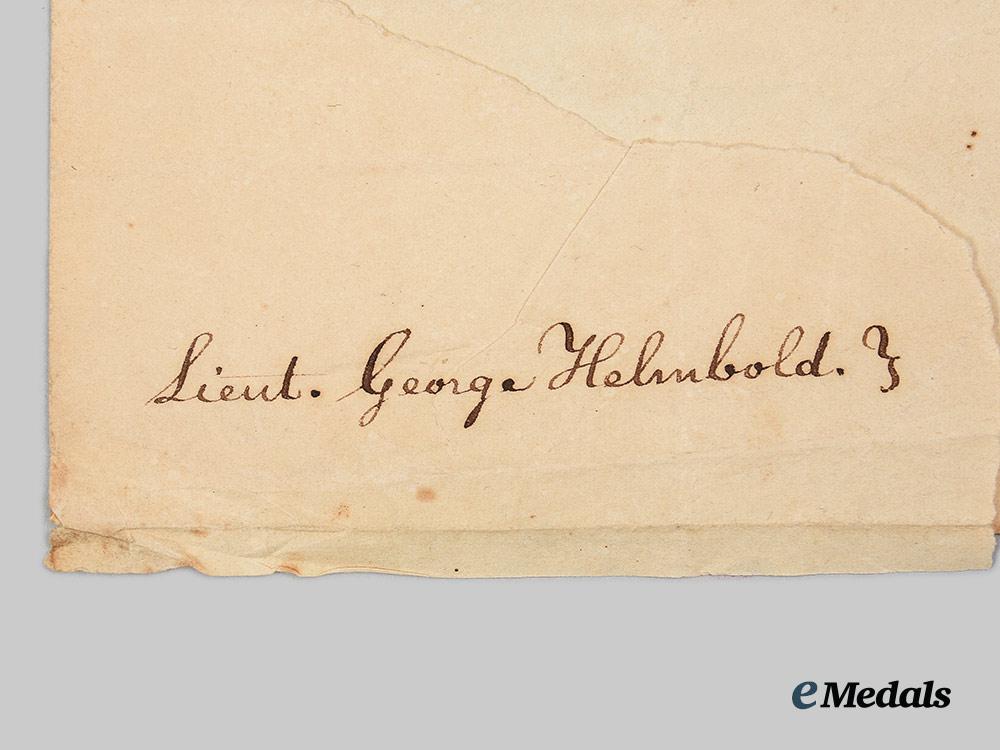 Lieut. George Helmbold. }
eMedals